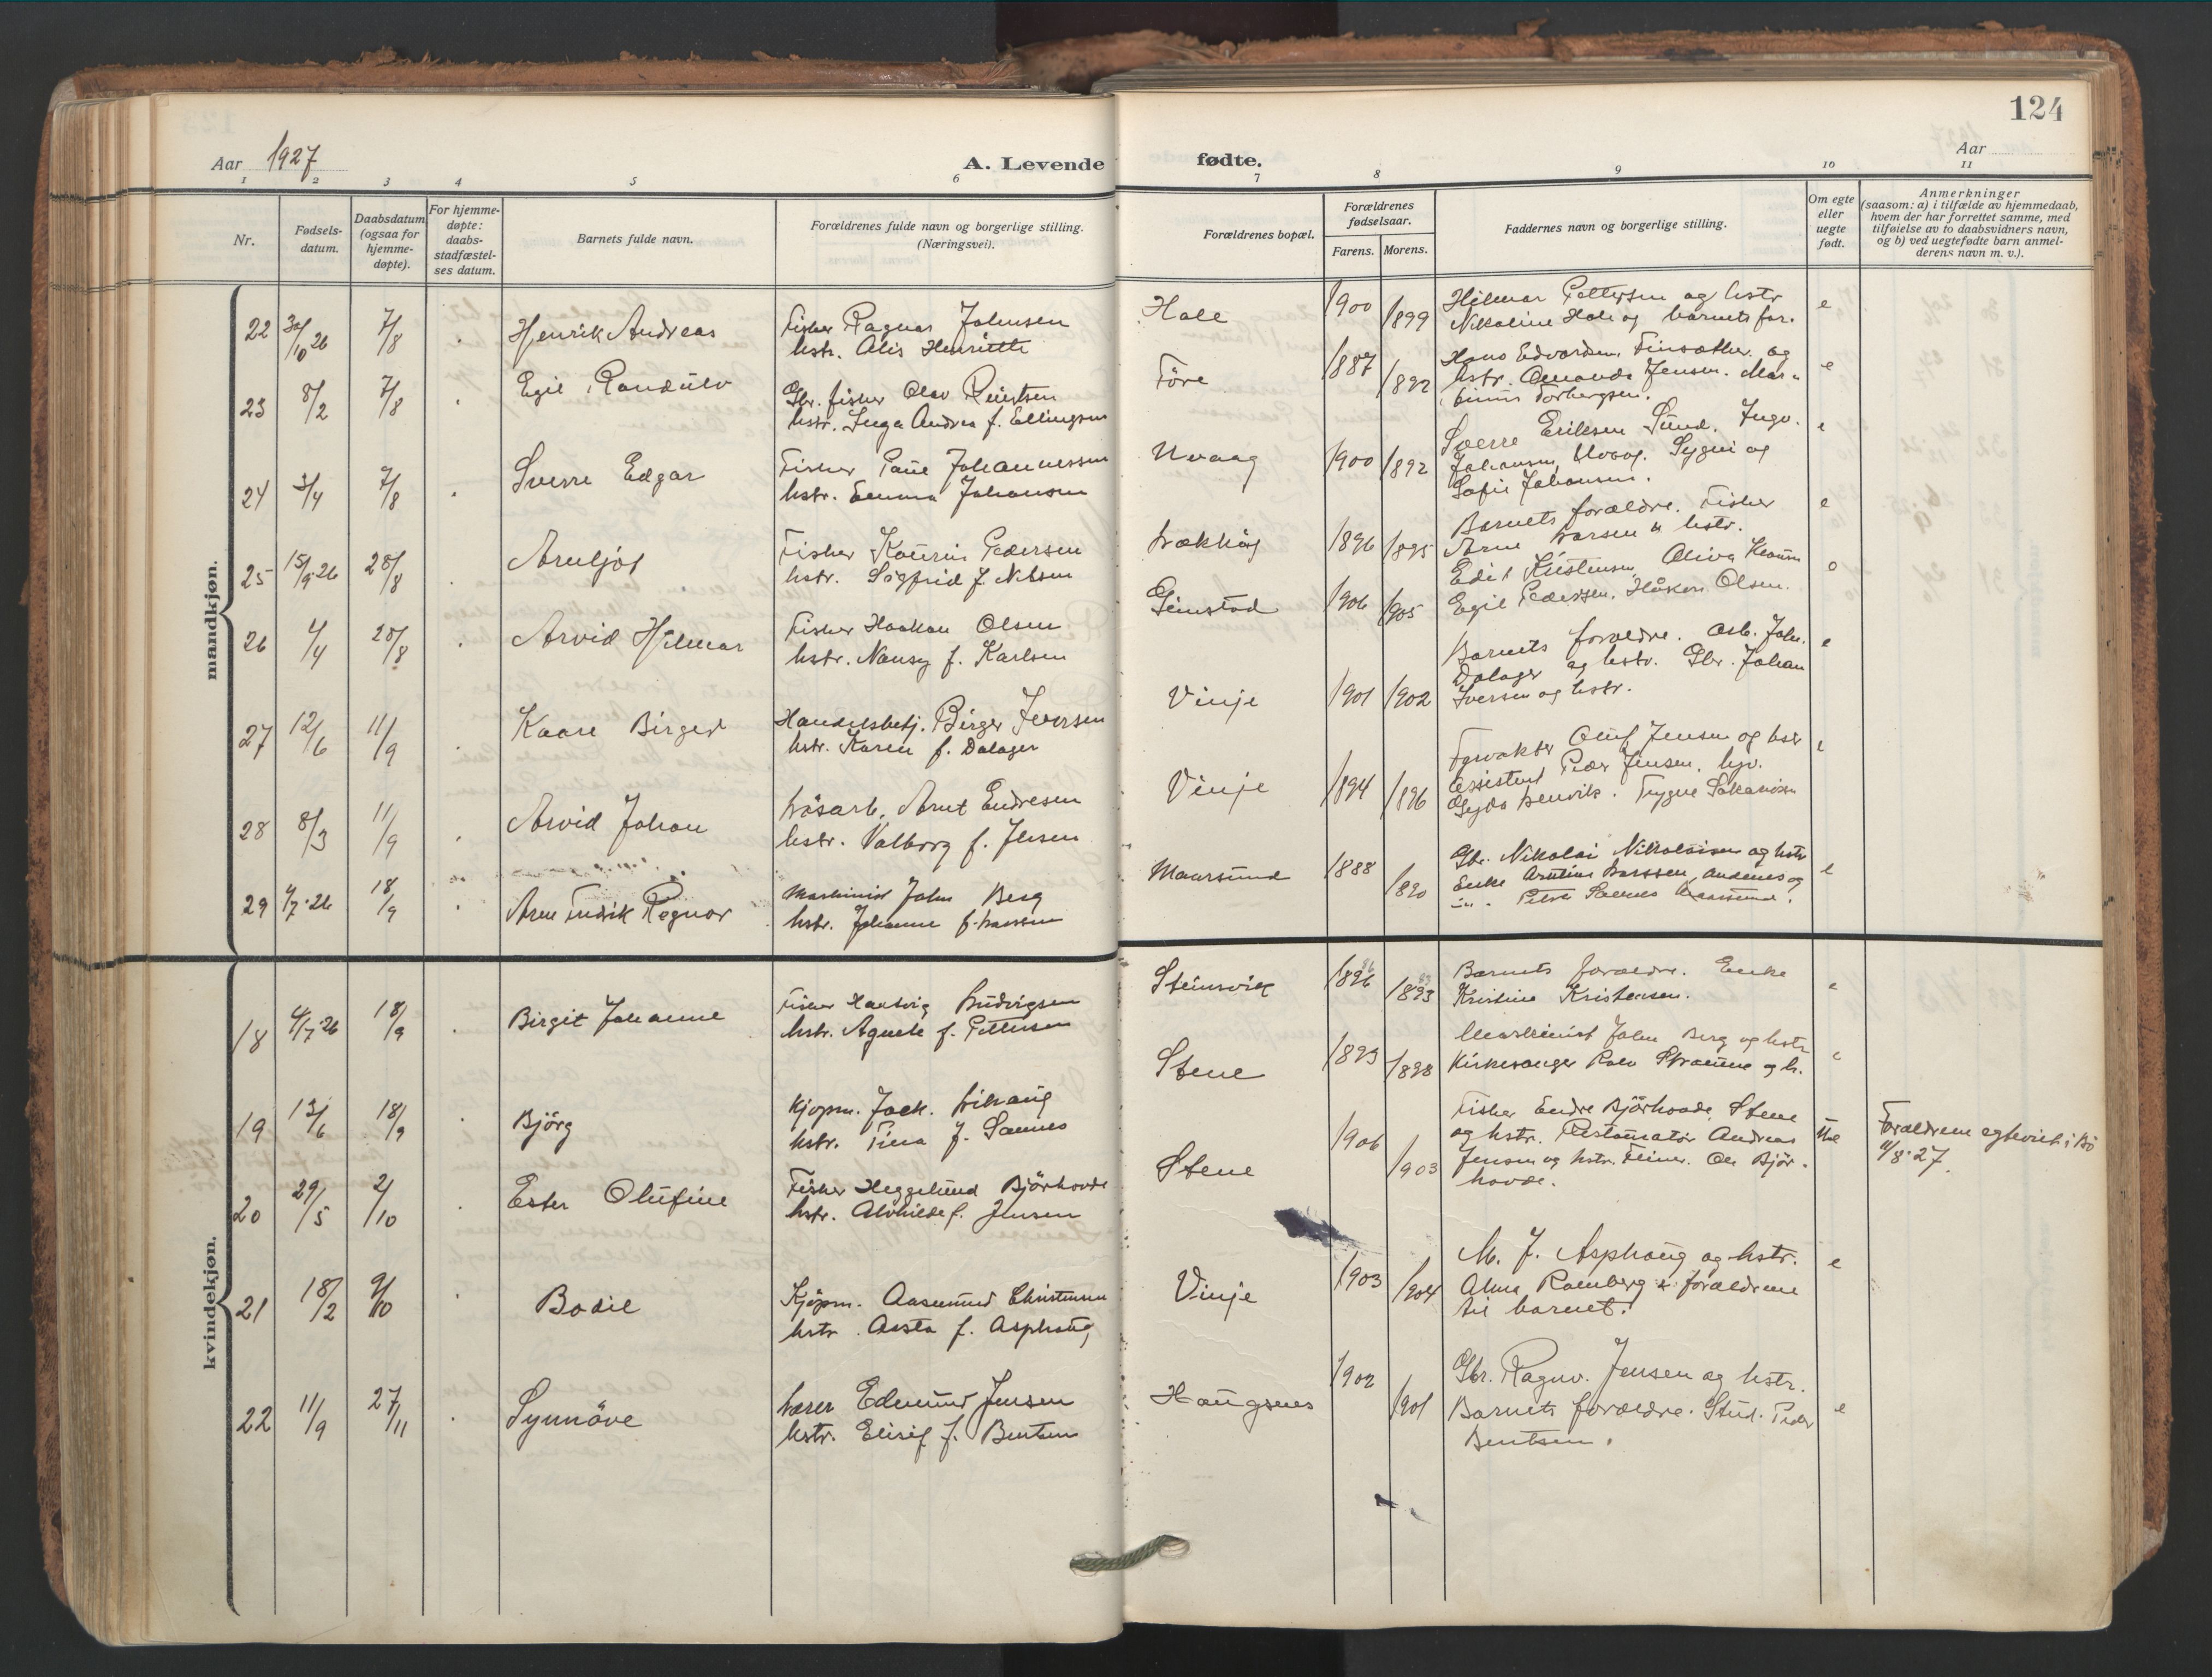 124
Aar 1927
A. Levende fødte.
Aar
1 2 3 4 5 6 7 8 9 10 11
Nr.
Fødsels-
datum.
Daabsdatum
(ogsaa for
hjemme-
døpte).
For hjemme-
døpte:
daabs-
stadfæstel-
ses datum.
Barnets fulde navn.
Forældrenes fulde navn og borgerlige stilling.
(Næringsvei).
Forældrenes bopæl.
Forældrenes
fødselsaar.
Farens. Morens.
Faddernes navn og borgerlige stilling.
Om egte
eller
uegte
født.
Anmerkninger
(saasom: a) i tilfælde av hjemmedaab,
hvem der har forrettet samme, med
tilføielse av to daabsvidners navn,
og b) ved uegtefødte barn anmel-
derens navn m. v.).
mandkjøn.
22 30/10 26 7/8 Henrik Andreas
Fisker Ragnar Johnsen
hstr. Alis Henriette
Hole 1900 1899
Hilmar Pettersen og hstr
Nikoline Hole og barnets far.
e
23 8/2 7/8 Egil Randulv
Gbr. fisker Olav Reintsen
hstr. Inga Andrea f. Ellingsen
Före 1887 1892
Hans Edvardsen, Finsæther. og
hstr. Amanda Jensen. Mar-
Torbergsen.
e
24 3/4 7/8 Sverre Edgar
Fisker Paul Johannessen
hstr. Emma Johansen
Uvaag 1900 1892
Sverre Eriksen Sund. Ingv.
Johansen, Uvaag. Sygni og
Sofie Johansen.
e
25 15/9 26 28/8 Arnljot
Fisker Kaurin Pedersen
hstr. Sigfrid f. Nilsen
1896 1895
Barnets forældre. Fisker
Arne Larsen & hstr.
e
26 4/4 28/8 Arvid Hilmar
Fisker Haakon Olsen
hstr. Nansy f. Karlsen
Gimstad 1906 1905
Edit Kristensen, Oliva
Egil Pedersen. Håkon Olsen.
e
27 12/6 11/9 Kaare Birger
Handelsbetj. Birger Iversen
hstr. Karen f. Dalager
Vinje 1901 1902
Barnets forældre. Arb. Joh.
Dalager og hstr. Gbr. Johan
Iversen og hstr.
e
28 8/3 11/9 Arvid Johan
Løsarb. Arnt Endresen
hstr. Valborg f. Jensen
Vinje 1894 1896
Fyrvakter Oluf Jensen og hstr
Assistent Peder Jensen. hjv.
Gyda Lenvik. Trygve Sakariasen
e
29 4/7 26 18/9 Arne Fredrik Regnor
Maskinist John Berg
hstr. Johanne f. Larssen
Maarsund 1888 1890
Gbr. Nikolai Nikolaisen og hstr
Enke Larssen, Andenes og
Petra Sannes Maarsund.
e
kvindekjøn.
18 4/7 26 18/9 Birgit Johanne
Fisker Hartvig Ludvigsen
hstr. Agnete f. Pettersen
Steinsvik 1896 1893
Barnets forældre. Enke
Kristine Kristensen.
e
19 13/6 18/9 Björg
Kjøpm. Joch. Lihaug
hstr. Tina f. Sannes
Stene 1893 1898
Maskinist John Berg og hstr
Kirkesanger Rolv Straume og h.
e
20 29/5 2/10 Ester Olufine
Fisker Heggelund Björhovde
hstr. Alvhilde f. Jensen
Stene 1906 1903
Fisker Endre Björhovde, Stene
og hstr. Restauratör Andreas
Jensen og hstr. Ole Björ-
hovde.
Ue
Forældrene egteviet i Bö
11/8 27.
21 18/2 9/10 Bodil
Kjöpm. Aasmund Christensen
hstr. Aasta f. Asphaug
Vinje 1903 1904
M. J. Asphaug og hstr.
Alma Romberg & forældrene
til barnet.
e
22 11/9 27/11 Synnöve
Lærer Edmund Jensen
hstr. Elisif f. Bentsen
Haugsnes 1902 1901
Gbr. Ragnv. Jensen og hstr.
Barnets forældre. Stud. Peder
Bentsen.
e